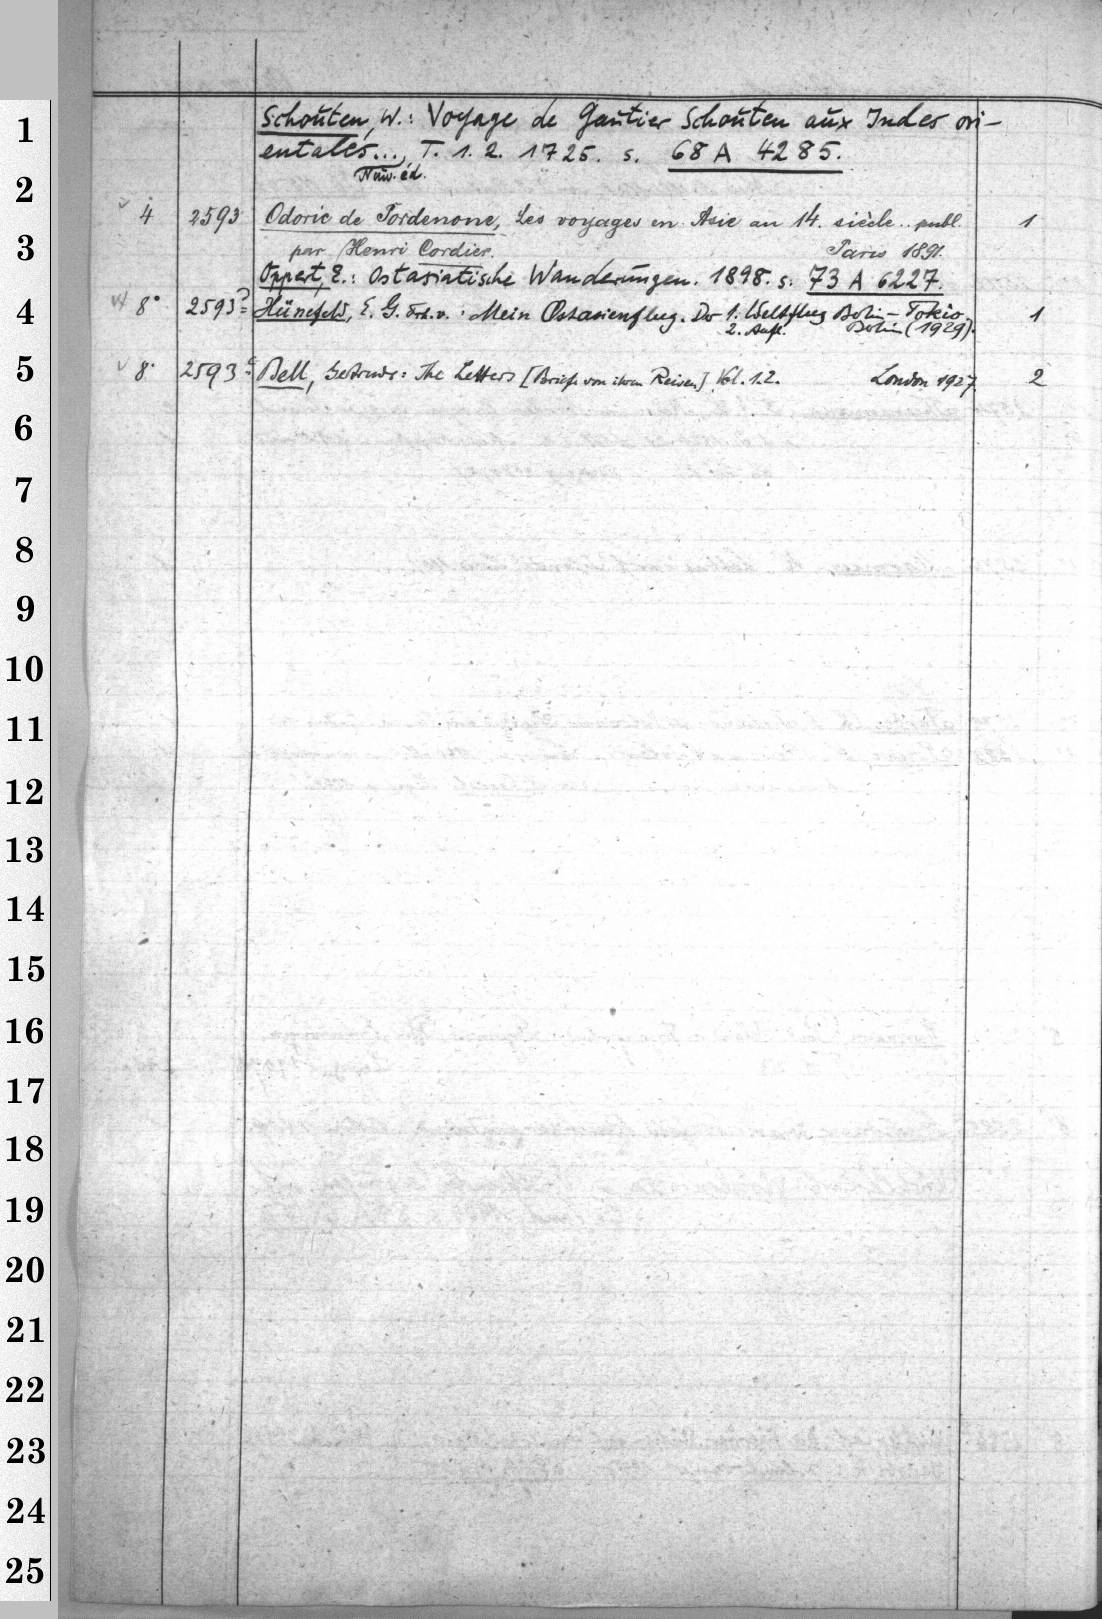 1
Schouten, W.: Voyage de Gautier Schouten aux Indes ori-
entales..., T. 1. 2. 1725. s. 68 A 4285.
Nouv. éd.
2
4 2593 Odoric de Pordenone, Les voyages en Asie au 14. siècle.. publ. 1
3
par Henri Cordier. Paris 1891.
Oppert, E.: Ostasiatische Wanderungen. 1898. s. 73 A 6227.
4
8° 2593 Hünefeld, E. G. Frh. v.: Mein Ostasienflug. Der 1. Weltflug Berlin–Tokio. 1
2. Aufl. Berlin (1929).
5
8° 2593 Bell, Gertrude: The Letters [Briefe von ihren Reisen] Vol. 1.2. London 1927 2
6
7
8
9
10
11
12
13
14
15
16
17
18
19
20
21
22
23
24
25